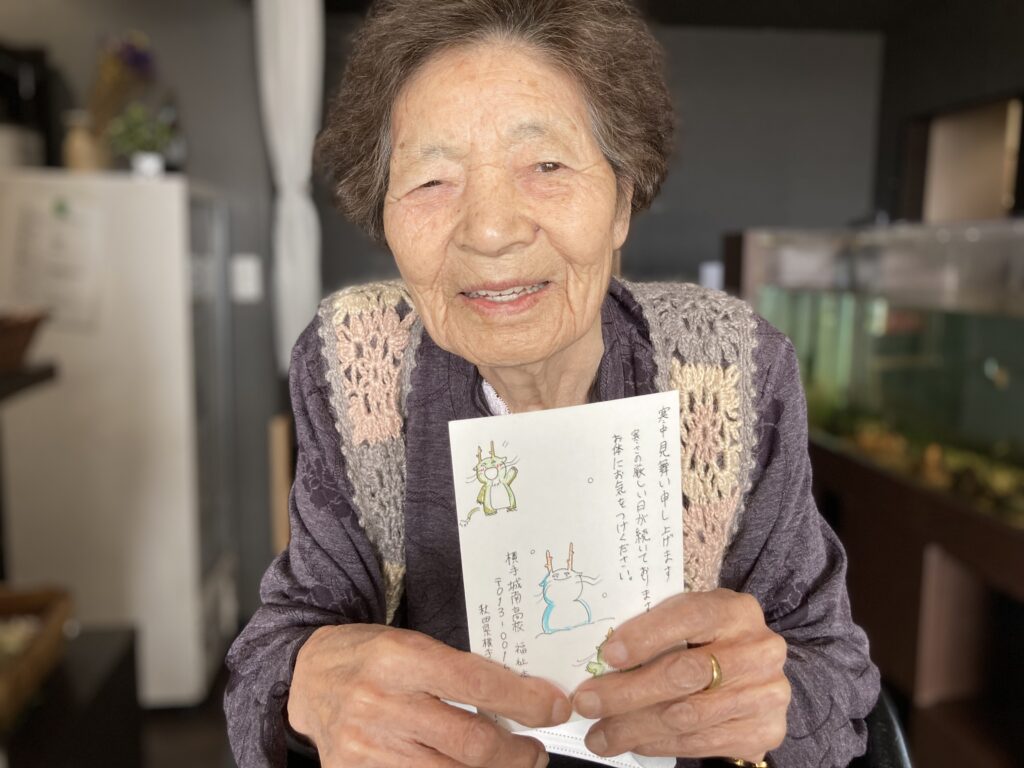 寒中見舞い申し上げます
寒さの厳しい日が続いておりますが
お体にお気をつけください。
横手城南高校 福祉
〒013-001
秋田県横手